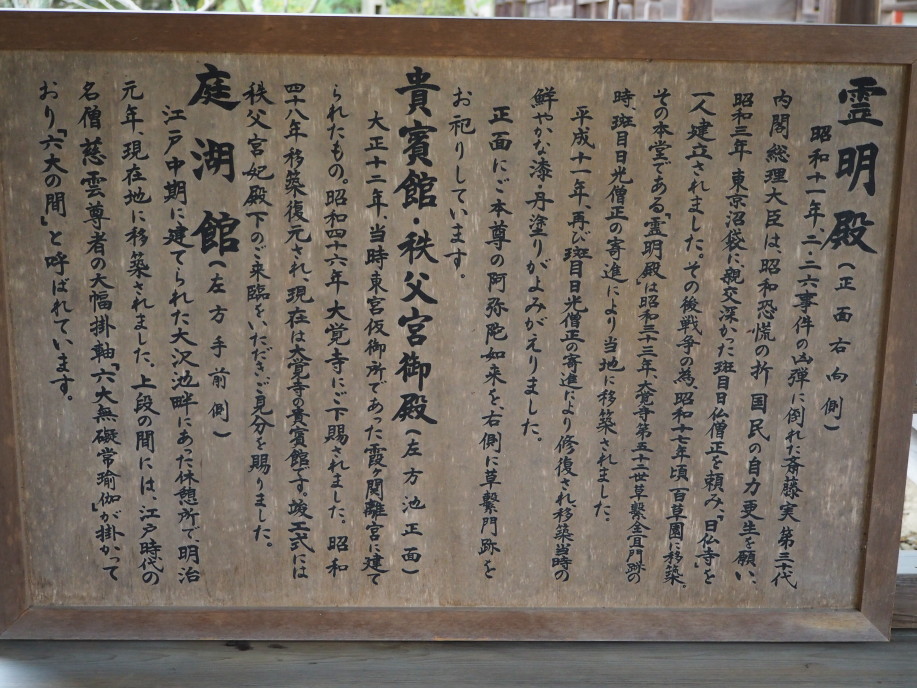 霊明殿（正面右向側）
昭和十一年、二・二六事件の凶弾に倒れた斎藤実第三十代
内閣総理大臣は、昭和恐慌の折 国民の自力更生を願い、
昭和三年 東京沼袋に、親交深かった斑目日仏僧正を頼み、「日仏寺」を
一人建立されました。その後戦争の為、昭和十七年頃 百草園に移築。
その本堂である「霊明殿」は昭和三十三年、大覚寺第五十二世草繫全宜門跡の
時、斑目日光僧正の寄進により当地に移築されました。
平成十一年、再び斑目日光僧正の寄進により修復され移築当時の
鮮やかな漆・丹塗りがよみがえりました。
正面にご本尊の阿弥陀如来を右側に草繫門跡を
お祀りしています。
貴賓館・秩父宮御殿（左方池正面）
大正十二年、当時東宮仮御所であった霞ヶ関離宮に建て
られたもの。昭和四十六年 大覚寺にご下賜されました。昭和
四十八年 移築復元され現在は大覚寺の貴賓館です。竣工式には
秩父宮妃殿下のご来臨をいただきご見分を賜りました。
庭湖館（左方手前側）
江戸中期に建てられた大沢池畔にあった休憩所で、明治
元年、現在地に移築されました。上段の間には、江戸時代の
名僧慈雲尊者の大幅掛軸「六大無礙常瑜伽」が掛かって
おり「六大の間」と呼ばれています。